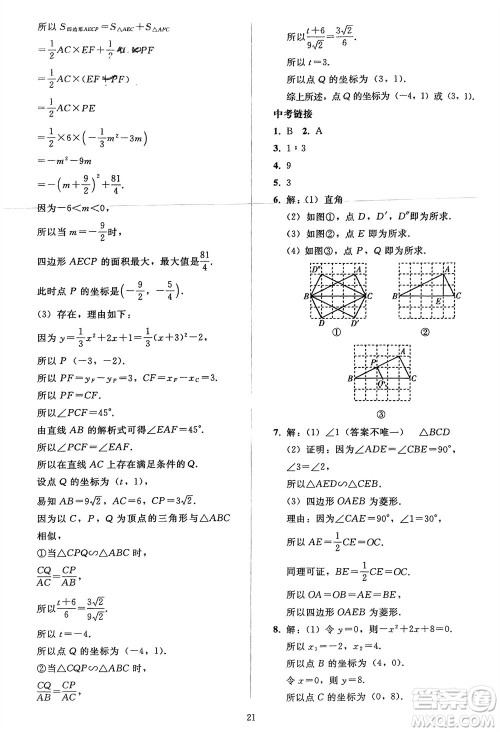 所以 S四边形AECP=S△AEC+S△APC
=1/2 AC×EF+1/2 AC×PF
=1/2 AC×(EF+PF)
=1/2 AC×PE
=1/2×6×(-1/3m²-3m)
=-m²-9m
=-(m+9/2)²+81/4.
因为-6<m<0,
所以当 m=-9/2 时,
四边形 AECP 的面积最大, 最大值是 81/4.
此时点 P 的坐标是(-9/2, -5/4).
(3) 存在, 理由如下:
因为 y=1/3x²+2x+1=1/3(x+3)²-2,
所以 P (-3, -2).
所以 PF=yF-yP=3, CF=xF-xC=3.
所以 PF=CF.
所以∠PCF=45°.
由直线 AB 的解析式可得∠EAF=45°.
所以∠PCF=∠EAF.
所以在直线 AC 上存在满足条件的点 Q.
设点 Q 的坐标为 (t, 1),
易知 AB=9√2, AC=6, CP=3√2.
因为以 C, P, Q 为顶点的三角形与△ABC
相似,
①当△CPQ∽△ABC 时,
CQ/AC=CP/AB.
所以 (t+6)/6=3√2/9√2.
所以 t=-4.
所以点 Q 的坐标为(-4, 1).
②当△CQP∽△ABC 时,
CQ/AB=CP/AC.
所以 (t+6)/9√2=3√2/6.
所以 t=3.
所以点 Q 的坐标为 (3, 1).
综上所述, 点 Q 的坐标为 (-4, 1) 或 (3, 1).
中考链接
1. B 2. A
3. 1∶3
4. 9
5. 3
6. 解: (1) 直角
(2) 如图①, 点 D, D′, D″即为所求.
(3) 如图②, 点 E 即为所求.
(4) 如图③, 点 P, Q 即为所求.
D″ A B C D′ D
A B E C
① ②
A P B Q C
③
7. 解: (1) ∠1 (答案不唯一) △BCD
(2) 证明: 因为∠CDB=∠ACB, ∠B=∠B,
所以△ABC∽△CBD.
(3) 四边形 OAEB 为菱形.
理由: 因为△DAE∽△DCE,
所以 AE=1/2CE=OA.
同理可证, BE=1/2CE=OB.
所以 OA=OB=AE=BE.
所以四边形 OAEB 为菱形.
8. 解: (1) 令 y=0, 则-x²+2x+8=0.
所以 x₁=-2, x₂=4.
所以点 B 的坐标为 (4, 0).
令 x=0, 则 y=8.
所以点 C 的坐标为 (0, 8).
21